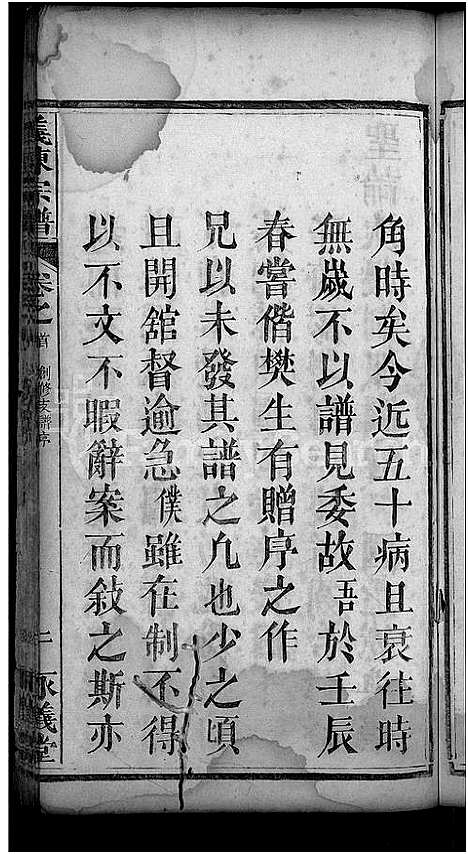 角時矣今近五十病且衰往時
無歲不以譜見委故吾於壬辰
春嘗偕樊生有贈序之作
兄以未發其譜之凢也少之頃
且開舘督逾急僕雖在制不得
以不文不暇辭案而敍之斯亦
義東宗譜
卷之首 創修支譜序
二
義堂